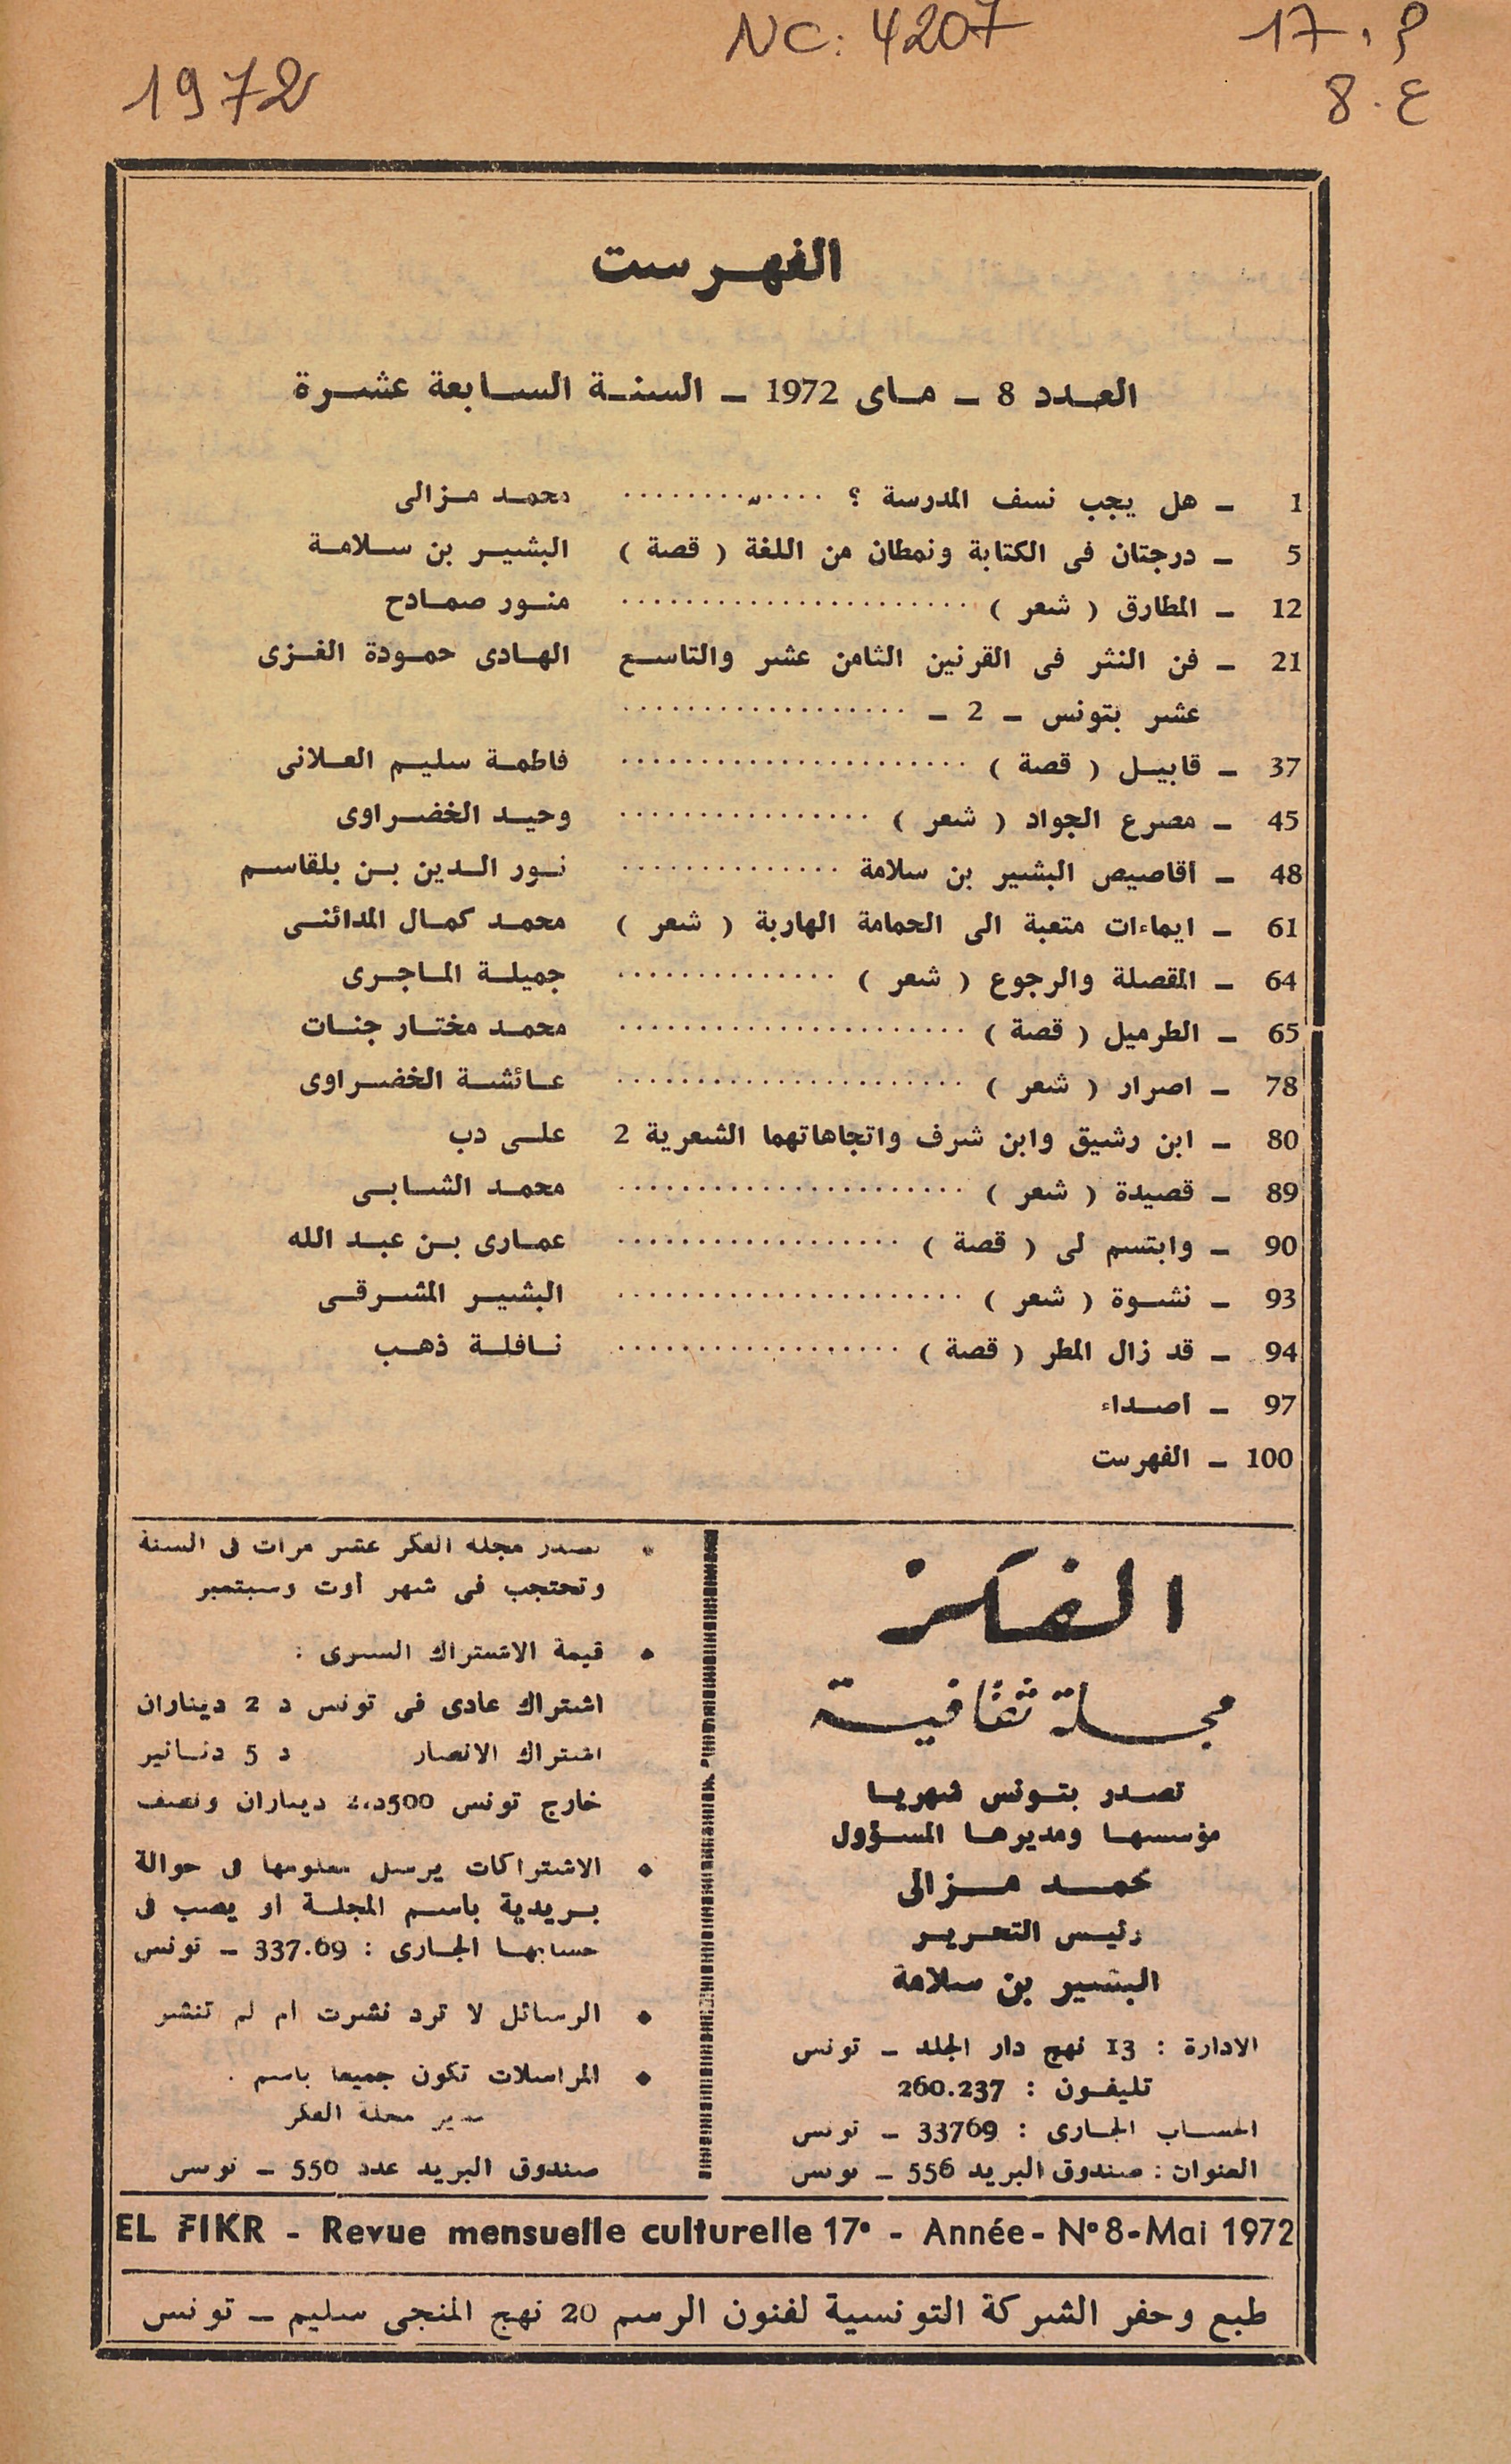 NC: 4207
م. 17
1972
ع. 8
الفهرست
العدد 8 ـ ماى 1972 ـ السنة السابعة عشرة
1 ـ هل يجب نسف المدرسة ؟ ........... محمد مزالى
5 ـ درجتان فى الكتابة ونمطان من اللغة ( قصة ) البشير بن سلامة
12 ـ المطارق ( شعر ) ...................... منور صمادح
21 ـ فن النثر فى القرنين الثامن عشر والتاسع الهادى حمودة الغزى
عشر بتونس ـ 2 ـ ..................
37 ـ قابيل ( قصة ) ...................... فاطمة سليم العلانى
45 ـ مصرع الجواد ( شعر ) ................ وحيد الخضراوى
48 ـ أقاصيص البشير بن سلامة .............. نور الدين بن بلقاسم
61 ـ ايماءات متعبة الى الحمامة الهاربة ( شعر ) محمد كمال المدائنى
64 ـ المقصلة والرجوع ( شعر ) .............. جميلة الماجرى
65 ـ الطرميل ( قصة ) ...................... محمد مختار جنات
78 ـ اصرار ( شعر ) ...................... عائشة الخضراوى
80 ـ ابن رشيق وابن شرف واتجاهاتهما الشعرية 2 على دب
89 ـ قصيدة ( شعر ) ...................... محمد الشابى
90 ـ وابتسم لى ( قصة ) .................. عمارى بن عبد الله
93 ـ نشوة ( شعر ) ...................... البشير المشرقى
94 ـ قد زال المطر ( قصة ) .................. نافلة ذهب
97 ـ أصداء
100 ـ الفهرست
الفكر
مجلة ثقافية
تصدر بتونس شهريا
مؤسسها ومديرها المسؤول
محمد مزالى
رئيس التحرير
البشير بن سلامة
الادارة : 13 نهج دار الجلد ـ تونس
تليفون : 260.237
الحساب الجارى : 33769 ـ تونس
العنوان : صندوق البريد 556 ـ تونس
• تصدر مجلة الفكر عشر مرات فى السنة
وتحتجب فى شهر أوت وسبتمبر
• قيمة الاشتراك السنوى :
اشتراك عادى فى تونس د 2 ديناران
اشتراك الانصار د 5 دنانير
خارج تونس 500د،2 ديناران ونصف
• الاشتراكات يرسل معلومها فى حوالة
بريدية باسم المجلة أو يصب فى
حسابها الجارى : 337.69 ـ تونس
• الرسائل لا ترد نشرت أم لم تنشر
• المراسلات تكون جميعا باسم .
مدير مجلة الفكر
صندوق البريد عدد 556 ـ تونس
EL FIKR - Revue mensuelle culturelle 17e - Année - N° 8 - Mai 1972
طبع وحفر الشركة التونسية لفنون الرسم 20 نهج المنجى سليم ـ تونس